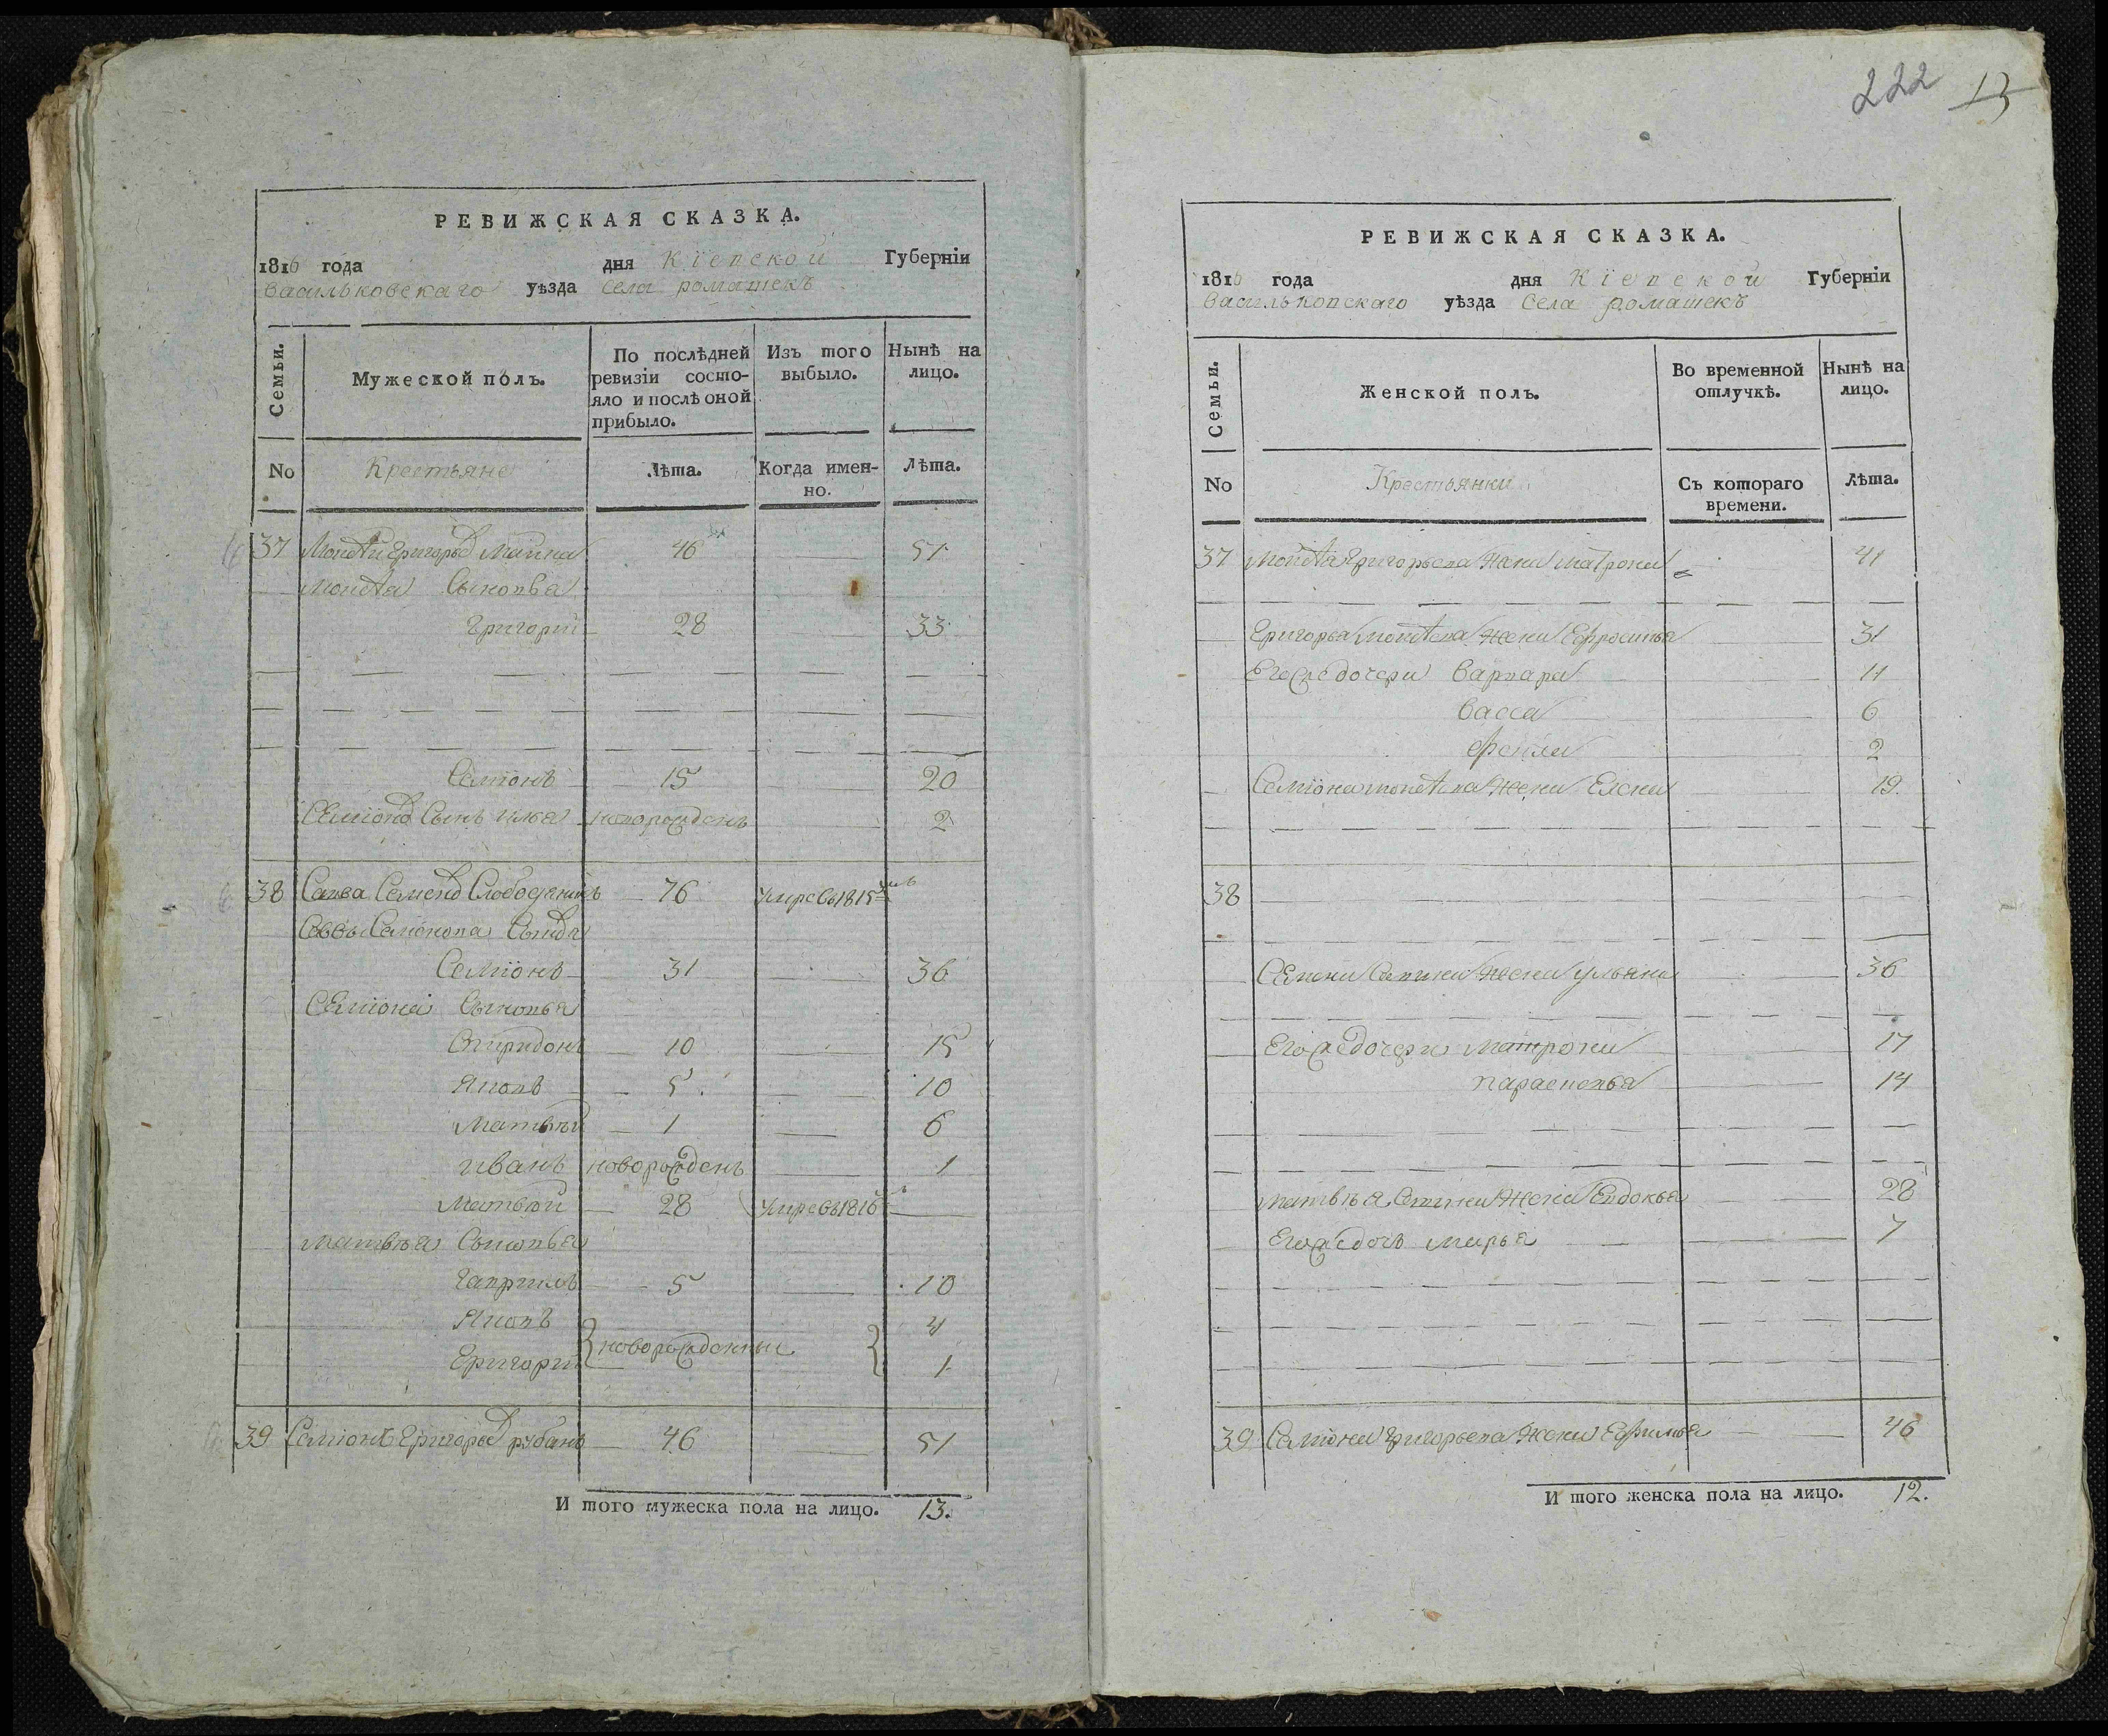 РЕВИЖСКАЯ СКАЗКА.
1816 года дня Кіевской Губерніи
Васильковскаго уѣзда села ромашекъ
Семьи. Мужеской полъ. По послѣдней ревизіи состояло и послѣ оной прибыло. Изъ того выбыло. Нынѣ на лицо.
No Крестьяне Лѣта. Когда именно. Лѣта.
37 46 51
Сыновья
Григорій 28 33
Семіонъ 15 20
Семіона Сынъ илья новорожденъ 2
38 Савва 76 умре въ 1815
Саввы Семіонова Сыновья
Семіонъ 31 36
Семіона Сыновья
Спиридонъ 10 15
Яковъ 5 10
Матвѣй 1 6
иванъ новорожденъ 1
Матвѣй 28 умре въ 1816
матвѣя Сыновья
Гаврило 5 10
Яковъ 4
новорожденныи
Григорій 1
39 Семіонъ Григорьевъ рубанъ 46 51
И того мужеска пола на лицо. 13.
222 13
РЕВИЖСКАЯ СКАЗКА.
1816 года дня Кіевской Губерніи
Васильковскаго уѣзда Села ромашекъ
Семьи. Женской полъ. Во временной отлучкѣ. Нынѣ на лицо.
No Крестьянки Съ котораго времени. Лѣта.
37 Григорьева жена матрона 41
Григорья жена Ефросинья 31
Его же дочери варвара 11
васса 6
2
Семіона жена Елена 19.
38
Семена Савина жена ульяна 36
Его же дочери матрона 17
парасковья 14
матвѣя Савина жена Евдокья 28
Его же дочь марья 7
39 Семіона григорьева жена Ефимья 46
И того женска пола на лицо. 12.